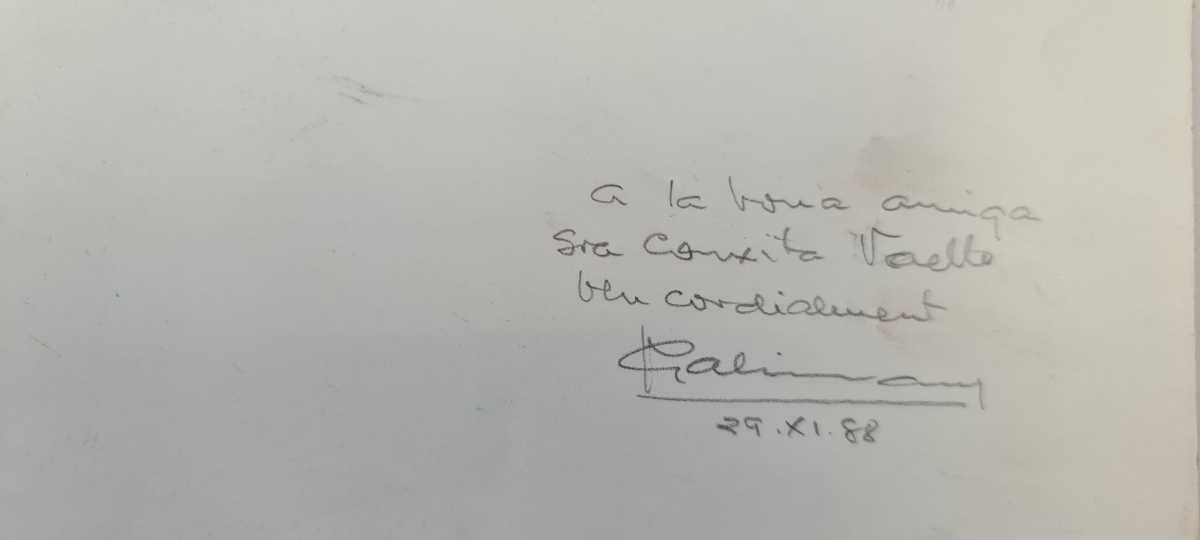 a la bona amiga
Sra Conxita Vaello
ben cordialment
29.XI.88